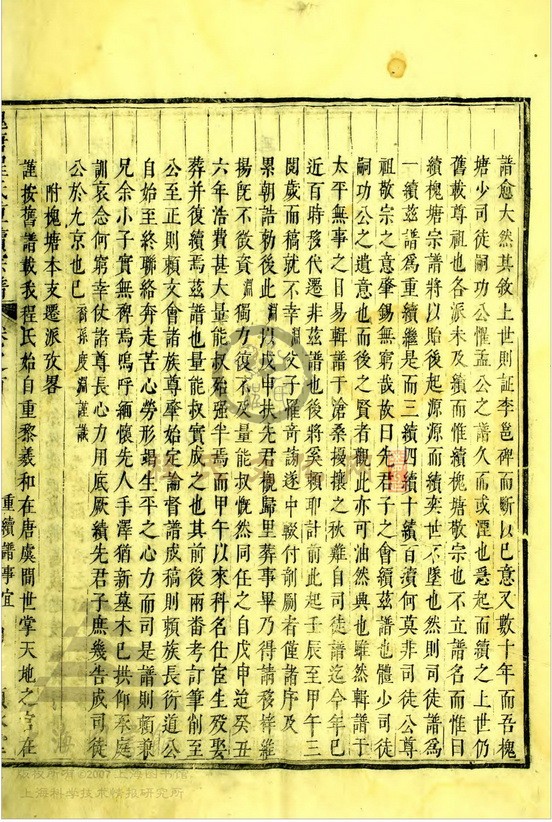 譜愈大然其敘上世則証李邕碑而斷以己意又數十年而吾槐
塘少司徒嗣功公懼孟公之譜久而或湮也爰起而續之上世仍
舊載尊祖也各派未及續而惟續槐塘敬宗也不立譜名而惟曰
續槐塘宗譜將以貽後起源源而續奕世不墜也然則司徒譜爲
一續茲譜爲重續繼是而三續四續十續百續何莫非司徒公尊
祖敬宗之意肇錫無窮哉故曰先君子之會續茲譜也體少司徒
嗣功公之遺意也而後之賢者觀此亦可油然興也雖然輯譜于
太平無事之日易輯譜于滄桑擾攘之秋難自司徒譜迄今年已
近百時移代遷非茲譜也後將奚賴耶計前此起壬辰至甲午三
閱歲而稿就不幸 父子罹奇
遂中輟付剞劂者僅譜序及
累朝誥勅後此以戊申扶先君櫬歸里葬事畢乃得請移
維
揚旣不徵資 獨力復不及量能叔慨然同任之自戊申迄癸丑
六年浩費甚大量能叔殆强半焉而甲午以來科名仕宦生歿娶
葬并復續焉茲譜也量能叔實成之也其前後兩番考訂筆削至
公至正則賴文會諸族尊舉始定論督譜成稿則賴族長衍道公
自始至終聯絡奔走苦心勞形竭生平之心力而司是譜則賴兼
兄余小子實無裨焉嗚呼緬懷先人手澤猶新墓木已拱仰承庭
訓哀念何窮幸仗諸尊長心力用底厥續先君子庶幾告成司徒
公於九京也已 謹識
附槐塘本支遷派攷畧
謹按舊譜載我程氏始自重黎羲和在唐虞間世掌天地之官在
重續譜事宜
版权所有©2007上海图书馆.
上海科学技术情报研究所